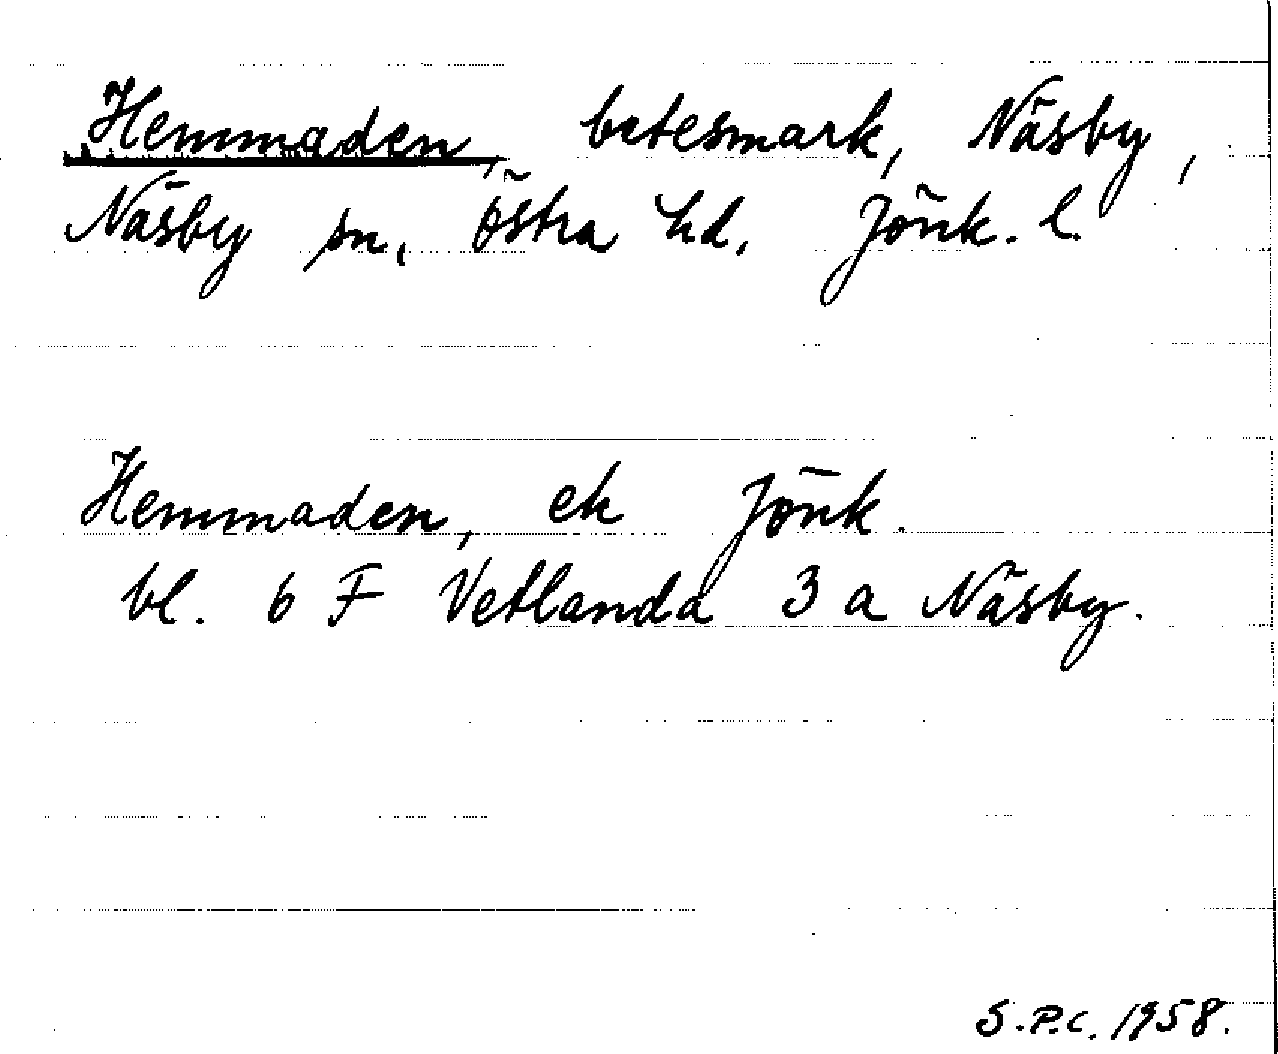 Hemmaden, betesmark, Näsby,
Näsby sn, Östra hd. Jönk. l.
Hemmaden, ek Jönk.
bl. 6 F Vetlanda 3 a Näsby.
S.P.C. 1958.